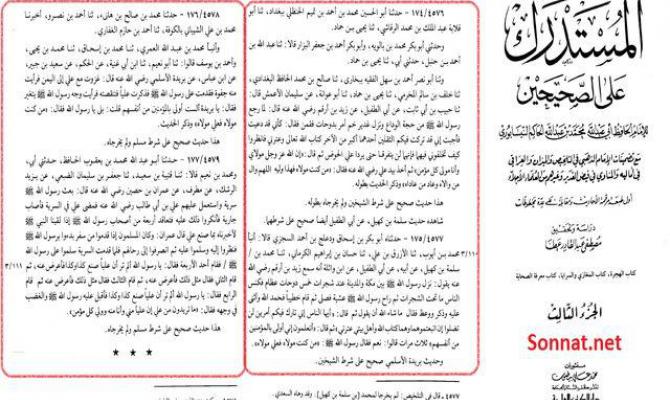 المستدرك
على الصحيحين
للإمام الحافظ أبي عبد الله محمد بن عبد الله الحاكم النيسابوري
دراسة وتحقيق
مصطفى عبد القادر عطا
كتاب الهجرة، كتاب المغازي والسرايا، كتاب معرفة الصحابة
الجزء الثالث
Sonnat.net
١٧٤/٤٥٧٦ - حدثنا أبو الحسين محمد بن أحمد بن تميم الحنظلي ببغداد، ثنا أبو
قلابة عبد الملك بن محمد الرقاشي، ثنا يحيى بن حماد.
وحدثني أبو بكر محمد بن بالويه، وأبو بكر أحمد بن جعفر البزار قالا: ثنا عبد الله بن
أحمد بن حنبل، حدثني أبي، ثنا يحيى بن حماد.
وثنا أبو نصر أحمد بن سهل الفقيه ببخارى، ثنا صالح بن محمد الحافظ البغدادي،
ثنا خلف بن سالم المخرمي، ثنا يحيى بن حماد، ثنا أبو عوانة، عن سليمان الأعمش قال: ثنا
حبيب بن أبي ثابت، عن أبي الطفيل، عن زيد بن أرقم رضي الله عنه قال: لما رجع
رسول الله ﷺ من حجة الوداع ونزل غدير خم أمر بدوحات فقممن فقال: كأني قد دعيت
فأجبت إني قد تركت فيكم الثقلين أحدهما أكبر من الآخر كتاب الله تعالى وعترتي فانظروا
كيف تخلفوني فيهما فإنهما لن يتفرقا حتى يردا علي الحوض ثم قال: «إن الله عز وجل مولاي
وأنا مولى كل مؤمن» ثم أخذ بيد علي رضي الله عنه فقال: «من كنت مولاه فهذا وليه اللهم وال
من والاه وعاد من عاداه» وذكر الحديث بطوله.
هذا حديث صحيح على شرط الشيخين ولم يخرجاه بطوله.
شاهده حديث سلمة بن كهيل، عن أبي الطفيل أيضاً صحيح على شرطهما.
١٧٥/٤٥٧٧ - حدثناه أبو بكر بن إسحاق ودعلج بن أحمد السجزي قالا: أنبأ
٣/١١٠ محمد بن أيوب، ثنا الأزرق بن علي، ثنا حسان بن إبراهيم الكرماني، ثنا محمد بن
سلمة بن كهيل، عن أبيه، عن أبي الطفيل، عن ابن واثلة أنه سمع زيد بن أرقم رضي الله
عنه يقول: نزل رسول الله ﷺ بين مكة والمدينة عند شجرات خمس دوحات عظام فكنس
الناس ما تحت الشجرات ثم راح رسول الله ﷺ عشية فصلى ثم قام خطيباً فحمد الله وأثنى
عليه وذكر ووعظ فقال: ما شاء الله أن يقول ثم قال: «أيها الناس إني تارك فيكم أمرين لن
تضلوا إن اتبعتموهما وهما كتاب الله وأهل بيتي عترتي» ثم قال: «أتعلمون أني أولى بالمؤمنين
من أنفسهم» ثلاث مرات قالوا: نعم فقال رسول الله ﷺ: «من كنت مولاه فعلي مولاه».
وحديث بريدة الأسلمي صحيح على شرط الشيخين.
٤٥٧٧ - قال في التلخيص: لم يخرجا لمحمد (بن سلمة بن كهيل). وقد وهاه السعدي.
١٧٦/٤٥٧٨ - حدثنا محمد بن صالح بن هانىء، ثنا أحمد بن نصر، أخبرنا
محمد بن علي الشيباني بالكوفة، ثنا أحمد بن حازم الغفاري.
وأنبأ محمد بن عبد الله العمري، ثنا محمد بن إسحاق، ثنا محمد بن يحيى،
وأحمد بن يوسف قالوا: ثنا أبو نعيم، ثنا ابن أبي غنية، عن الحكم، عن سعيد بن جبير،
عن ابن عباس، عن بريدة الأسلمي رضي الله عنه قال: غزوت مع علي إلى اليمن فرأيت
منه جفوة فقدمت على رسول الله ﷺ فذكرت علياً فتنقصته فرأيت وجه رسول الله ﷺ يتغير
فقال: «يا بريدة ألست أولى بالمؤمنين من أنفسهم» قلت: بلى يا رسول الله فقال: «من كنت
مولاه فعلي مولاه» وذكر الحديث.
هذا حديث صحيح على شرط مسلم ولم يخرجاه.
١٧٧/٤٥٧٩ - حدثنا أبو عبد الله محمد بن يعقوب الحافظ، حدثني أبي،
ومحمد بن نعيم قالا: ثنا قتيبة بن سعيد، ثنا جعفر بن سليمان الضبعي، عن يزيد
الرشك، عن مطرف، عن عمران بن حصين رضي الله عنه قال: بعث رسول الله ﷺ
سرية واستعمل عليهم علي بن أبي طالب رضي الله عنه، فمضى علي في السرية فأصاب
جارية فأنكروا ذلك عليه فتعاقد أربعة من أصحاب رسول الله ﷺ إذا لقينا النبي ﷺ
أخبرناه بما صنع علي قال عمران: وكان المسلمون إذا قدموا من سفر بدءوا برسول الله ﷺ
فنظروا إليه وسلموا عليه ثم انصرفوا إلى رحالهم فلما قدمت السرية سلموا على رسول الله
٣/١١١ ﷺ، فقام أحد الأربعة فقال: يا رسول الله ألم تر أن علياً صنع كذا وكذا فأعرض عنه، ثم
قام الثاني فقال مثل ذلك فأعرض عنه ثم قام الثالث فقال مثل ذلك فأعرض عنه ثم قام
الرابع فقال: يا رسول الله ألم تر أن علياً صنع كذا وكذا فأقبل عليه رسول الله ﷺ والغضب
في وجهه فقال: «ما تريدون من علي إن علياً مني وأنا منه وولي كل مؤمن».
هذا حديث صحيح على شرط مسلم ولم يخرجاه.
* * *